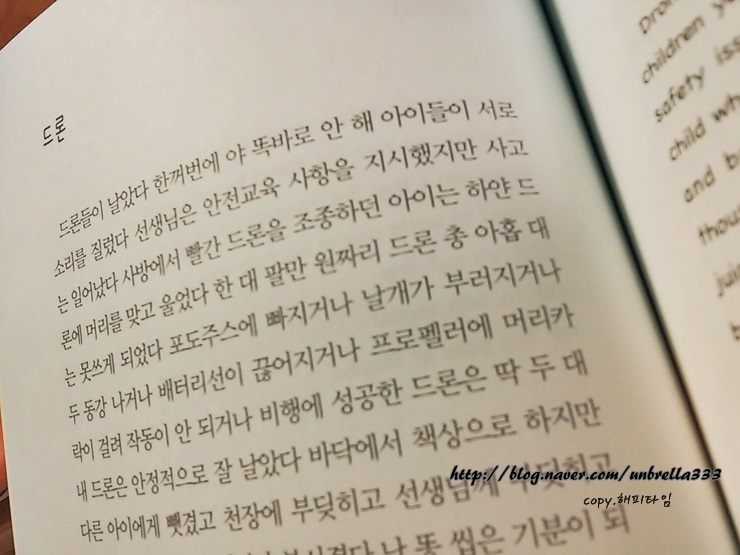 드론
드론들이 날았다 한꺼번에 야 똑바로 안 해 아이들이 서로
소리를 질렀다 선생님은 안전교육 사항을 지시했지만 사고
는 일어났다 사방에서 빨간 드론을 조종하던 아이는 하얀 드
론에 머리를 맞고 울었다 한 대 팔만 원짜리 드론 총 아홉 대
는 못쓰게 되었다 포도주스에 빠지거나 날개가 부러지거나
두 동강 나거나 배터리선이 끊어지거나 프로펠러에 머리카
락이 걸려 작동이 안 되거나 비행에 성공한 드론은 딱 두 대
내 드론은 안정적으로 잘 날았다 바닥에서 책상으로 하지만
다른 아이에게 뺏겼고 천장에 부딪히고 선생님께 부딪히고
나 똥 씹은 기분이 되
children
safety
child
and
http://blog.naver.com/unbrella333
copy.해피타임